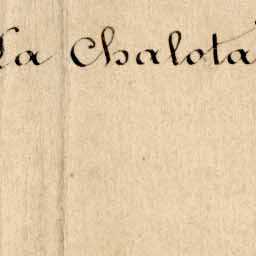 La Chalota